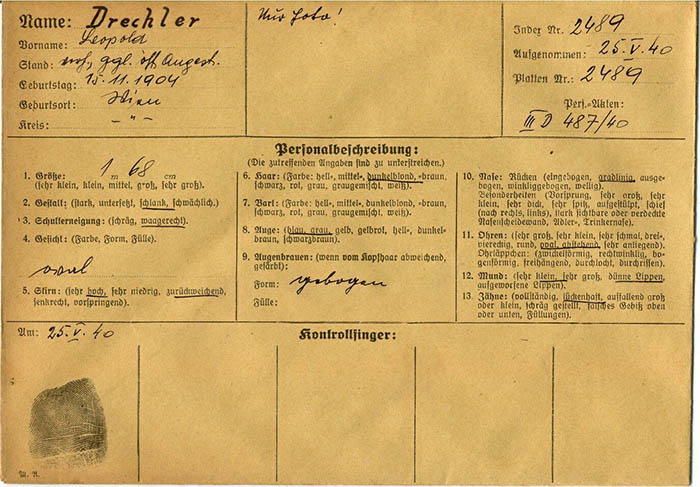 Name: Drechler
Vorname: Leopold
Stand: verh, ggl. öst. Angest.
Geburtstag: 15. 11. 1904
Geburtsort: Wien
Kreis: – " –
Nur Foto!
Index Nr. 2489
Aufgenommen: 25. V. 40
Platten Nr.: 2489
Pers.-Akten:
III D 487/40
Personalbeschreibung:
(Die zutreffenden Angaben sind zu unterstreichen.)
1. Größe: 1 m 68 cm
(sehr klein, klein, mittel, groß, sehr groß).
2. Gestalt: (stark, untersetzt, schlank, schwächlich).
3. Schulterneigung: (schräg, waagerecht).
4. Gesicht: (Farbe, Form, Fülle).
oval
5. Stirn: (sehr hoch, sehr niedrig, zurückweichend,
senkrecht, vorspringend).
6. Haar: (Farbe: hell-, mittel-, dunkelblond, -braun,
schwarz, rot, grau, graugemischt, weiß).
7. Bart: (Farbe: hell-, mittel-, dunkelblond, -braun,
schwarz, rot, grau, graugemischt, weiß).
8. Auge: (blau, grau, gelb, gelbrot, hell-, dunkel-
braun, schwarzbraun).
9. Augenbrauen: (wenn vom Kopfhaar abweichend,
gefärbt):
Form: gebogen
Fülle:
10. Nase: Rücken (eingebogen, gradlinig, ausge-
bogen, winkliggebogen, wellig).
Besonderheiten (Vorsprung, sehr groß, sehr
klein, sehr dick, sehr spitz, aufgestülpt, schief
(nach rechts, links), stark sichtbare oder verdeckte
Nasenscheidewand, Adler-, Trinkernase).
11. Ohren: (sehr groß, sehr klein, sehr schmal, drei-,
viereckig, rund, oval, abstehend, sehr anliegend).
Ohrläppchen: (zwickelförmig, rechtwinklig, bo-
genförmig, freihängend, durchlocht, durchrissen).
12. Mund: (sehr klein, sehr groß, dünne Lippen,
aufgeworfene Lippen).
13. Zähne: (vollständig, lückenhaft, auffallend groß
oder klein, schräg gestellt, falsches Gebiß oben
oder unten, Füllungen).
Am: 25. V. 40
Kontrollfinger:
M. R.